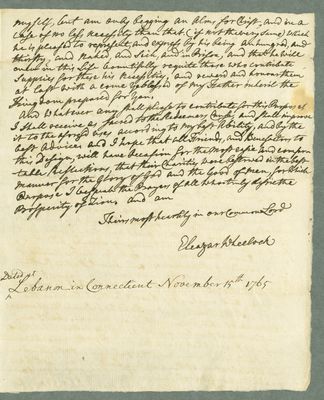 myself, but am only begging an Alms for Christ, and in a
Case of no less necessity than that (if not the very same) which
he is pleased to represent, and express by his being an hungred, and
thirsty, and Naked, and Sick, and in Prison, and that he will
even in this Life bountifully requite those who contribute
Supplies for these his Necessities, and reward and honour them
at last with a come ye blessed of my Father inherit the
Kingdom prepared for you.
And Whatever any shall please to contribute for this Purpose
I Shall receive as Sacred to the Redeemers Cause, and shall improve
it to the aforesd uses according to my best Ability, and by the
best Advice: and I hope that all Friends, and Benefactors to
this Design, will have Occasion for the most easie and comfor-
table Reflections, that their Charities were bestowed in the best
manner for the Glory of God and the good of men, for which
Purpose I bespeak the Prayers of all who truly desire the
Prosperity of Zion, and am
Theirs most heartily in our Common Lord
Eleazar Wheelock
Dated at
Lebanon in Connecticut November 15th 1765